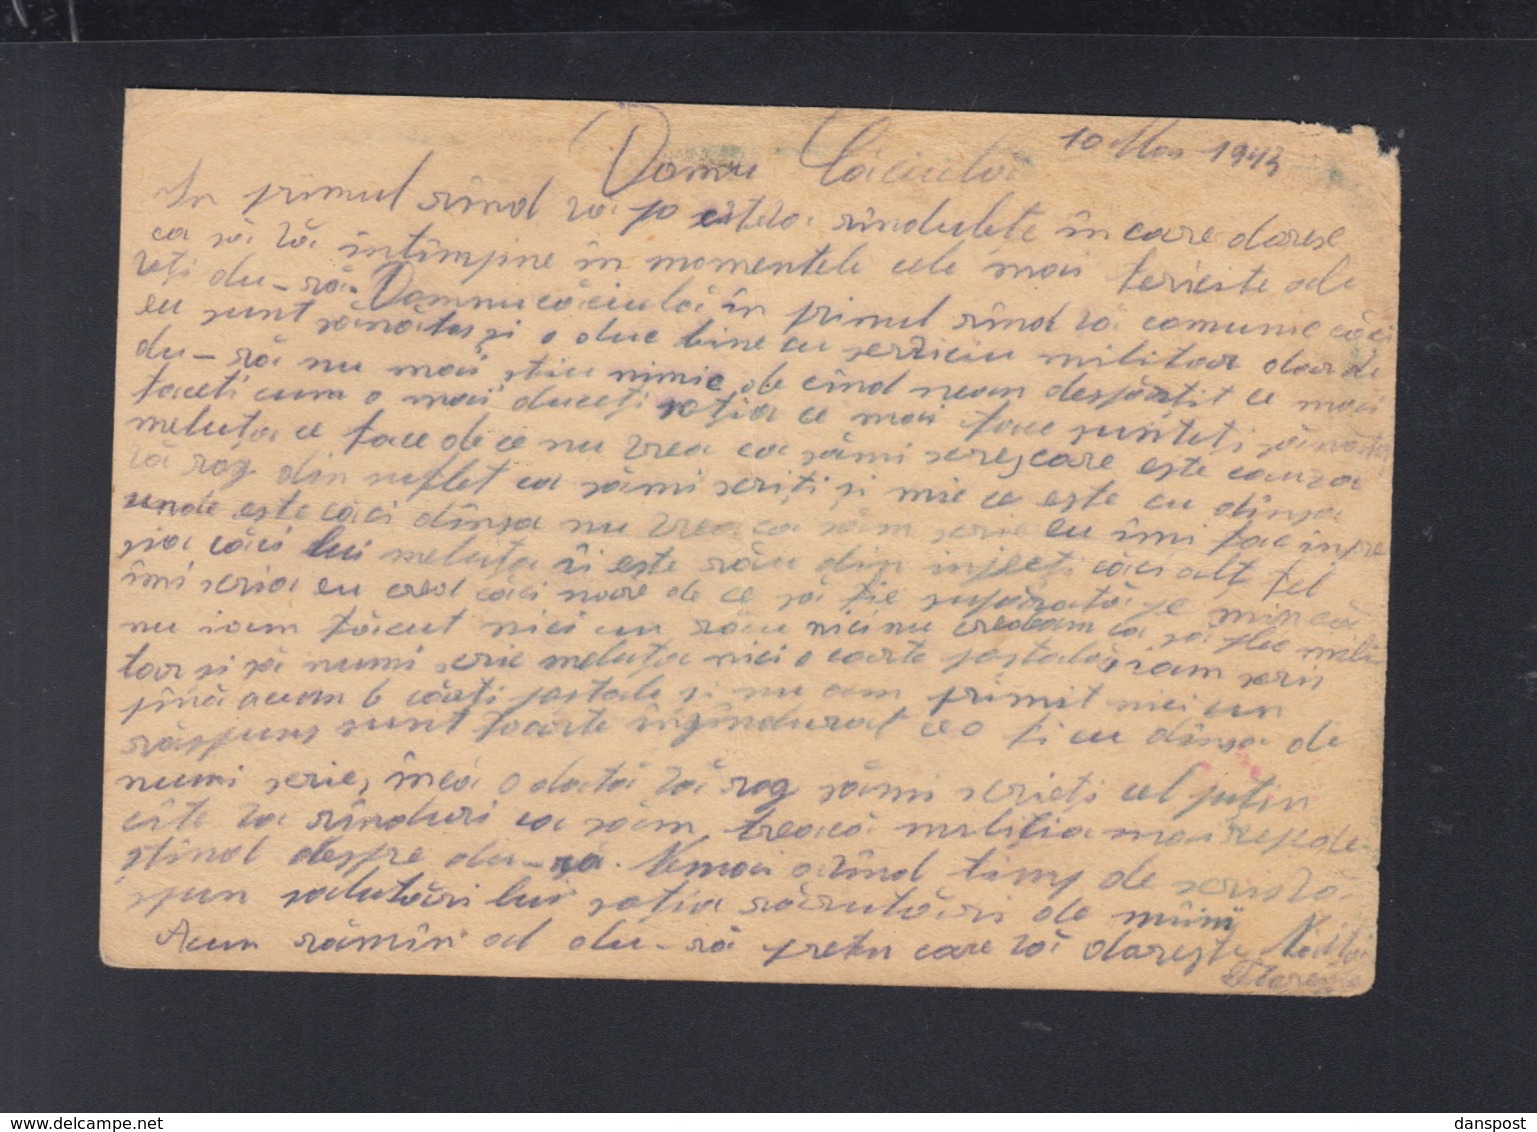 10 Mar 1943
Domnu Căciulă
În primul rînd vă po estea rîndulete în care doresc
ca să vă întimpine în momentele cele mai fericite ale
veți du-ră. Domnu căciulă în primul rînd vă comunic căci
eu sunt sănătos și o duc bine cu serviciu militar dar de
du-ră nu mai știu nimic de cînd neam despărțit ce mai
faceți cum o mai duceți soția ce mai face sunteți sănătoși
meluța ce face de ce nu vrea ca sămi scrie, care este cauza
vă rog din suflet ca sămi scriți și mie ce este cu dînsa
unde este căci dînsa nu vrea ca săm scrie eu îmi fac inpre
sia căci lui meluța îi este rău din injecți căci alt fel
îmi scria eu cred căci nare de ce să fie supărată pe mine că
nu iam făcut nici un rău nici nu credeam ca să fie mili
tar și să numi scrie meluța nici o carte postală, iam scris
pînă acum 6 cărți postale și nu am primit nici un
răspuns sunt foarte îngîndurat ce o fi cu dînsa de
numi scrie, încă o dată vă rog sămi scrieți cel puțin
cîte va rînduri ca săm treacă miliția mai repede
știind despre du-ră. Nemai avînd timp de scris vă
spun salutări lui soția sărutări de mîini
Acum rămîn al du-ră pretin care vă dorește